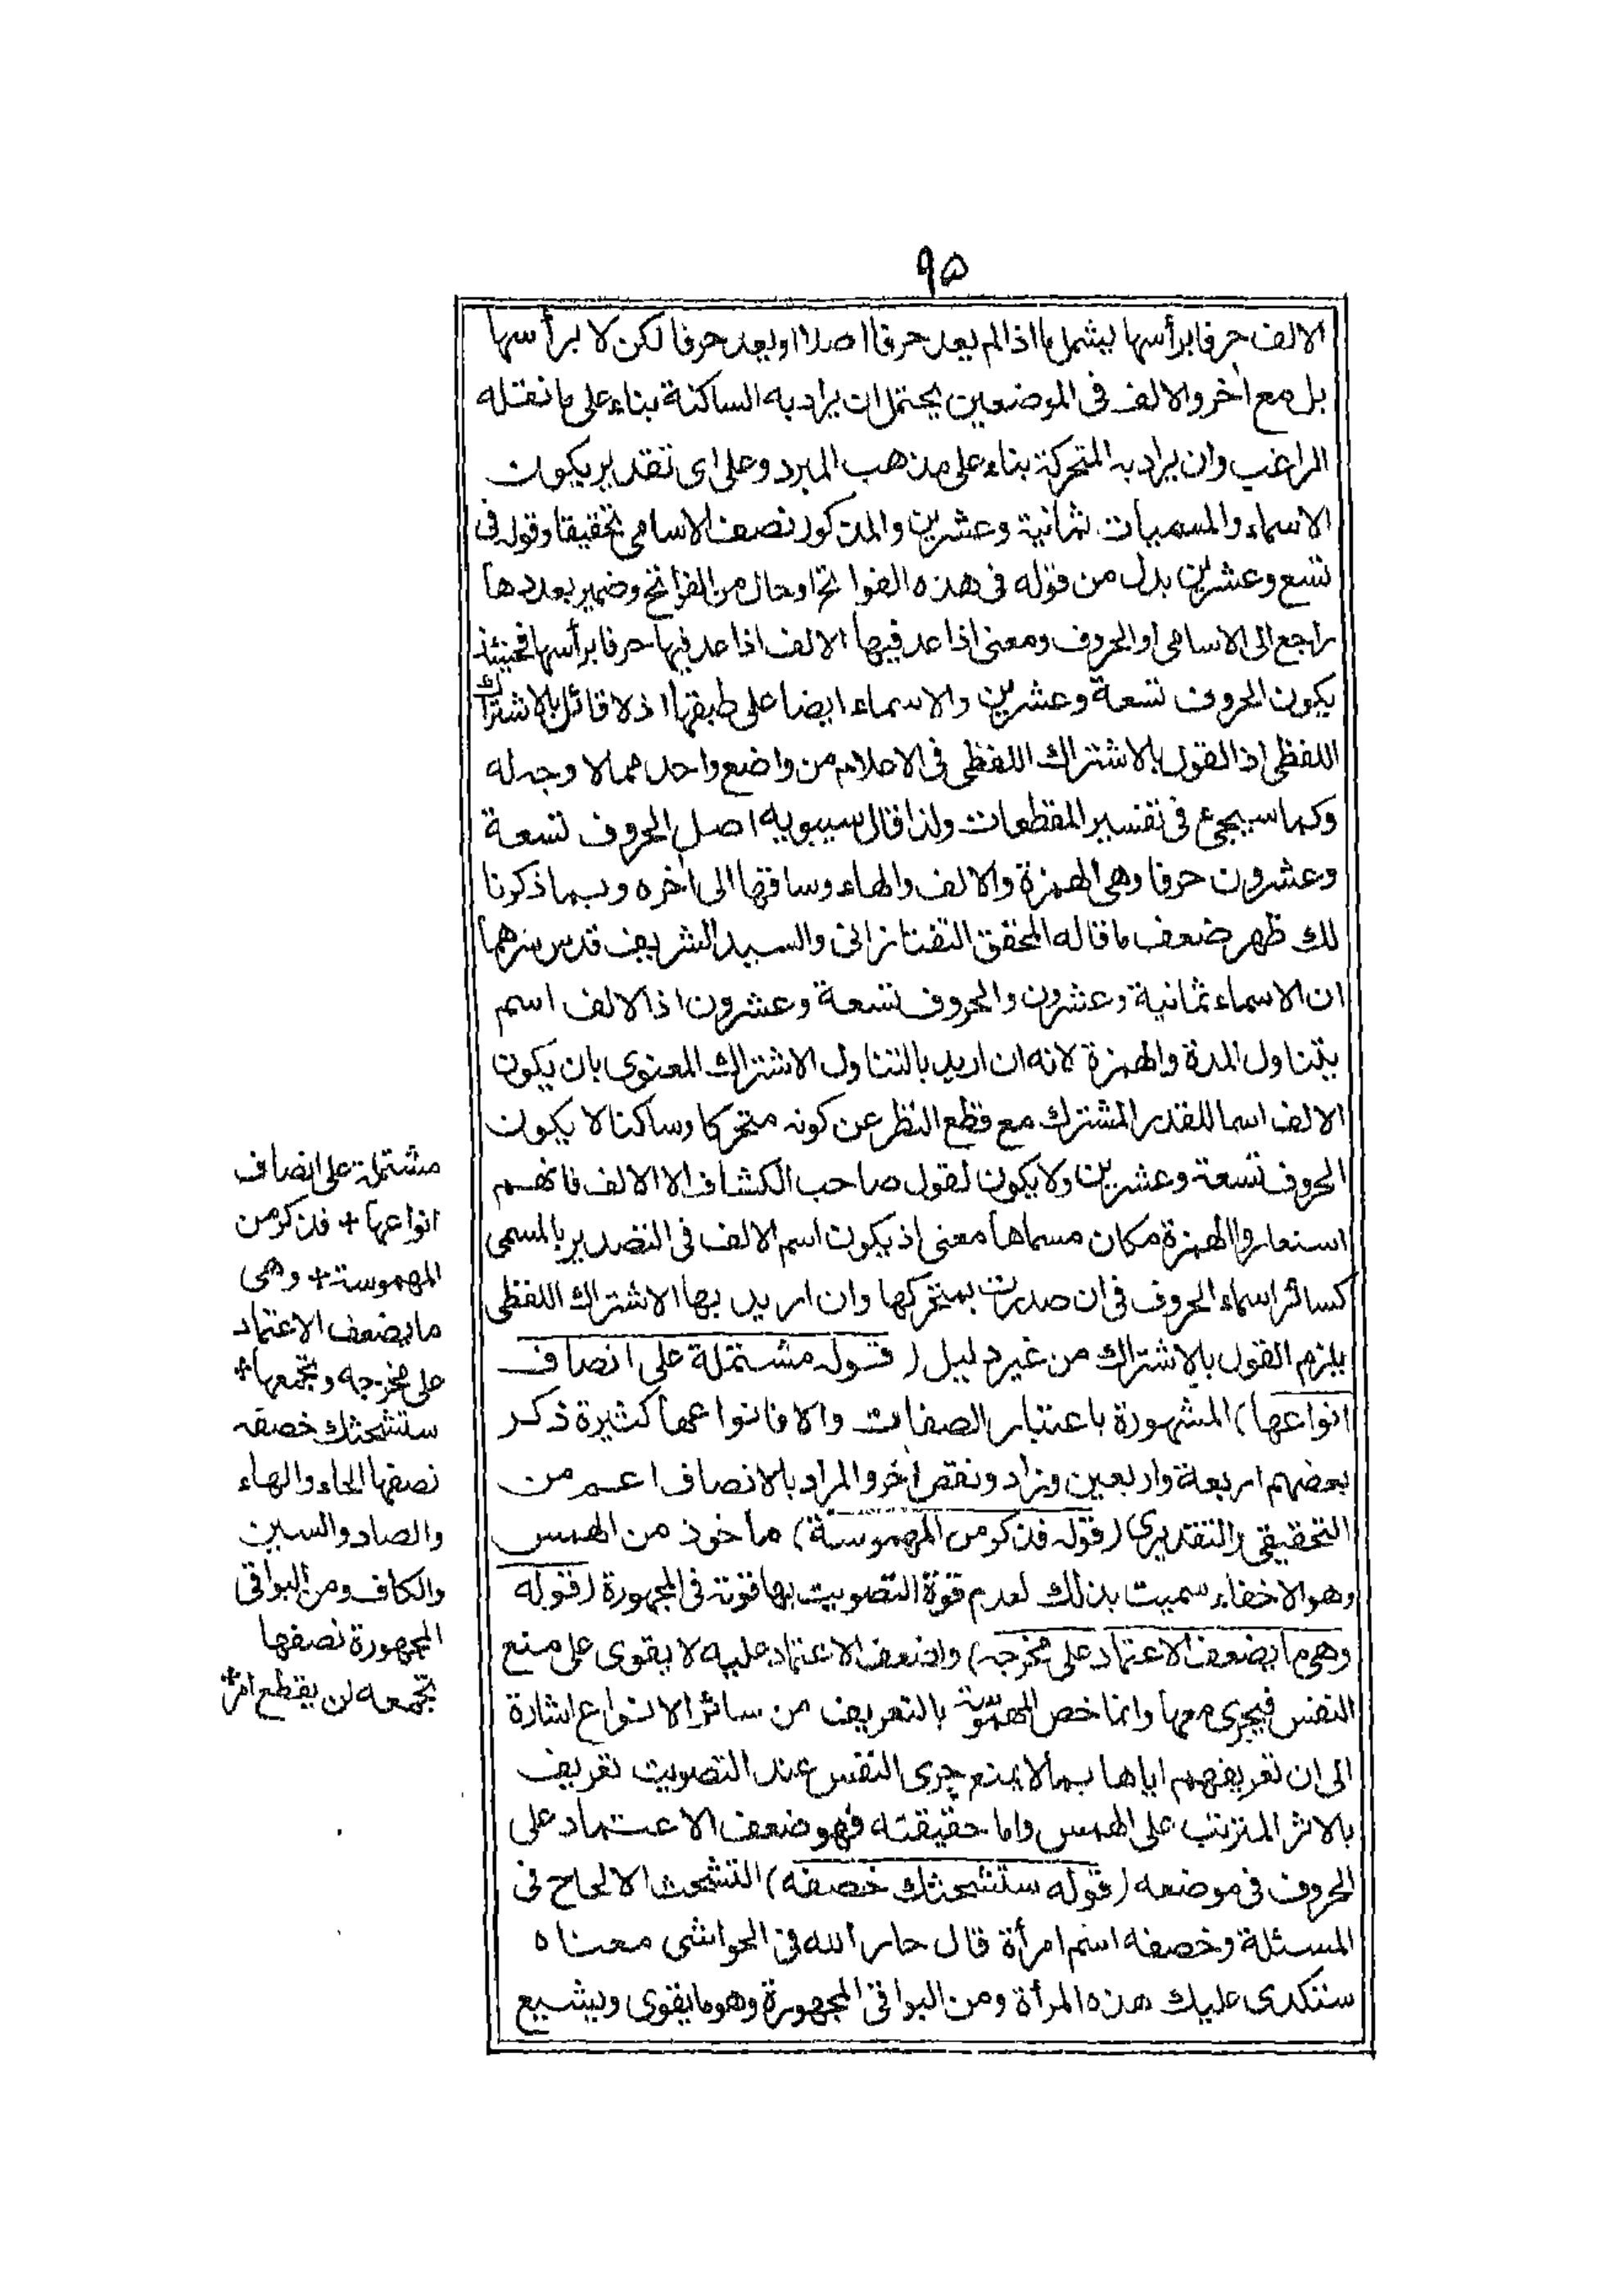 ٩٥
الالف حرفا برأسها يشمل ما اذا لم يعد حرفا اصلا او يعد حرفا لكن لا برأسها
بل مع أخر والالف فى الموضعين يحتمل ان يراد به الساكنة بناء على ما نقله
الراغب وان يراد به المتحركة بناء على مذهب المبرد وعلى اى تقدير يكون
الاسماء والمسميات ثمانية وعشرين والمذكور نصف الاسامى تحقيقا وقوله فى
تسع وعشرين بدل من قوله فى هذه الفواتح او حال من الفواتح وضمير بعددها
راجع الى الاسامى او الحروف ومعنى اذا عد فيها الالف اذا عد فيها حرفا برأسها فحينئذ
يكون الحروف تسعة وعشرين والاسماء ايضا على طبقها اذ لا قائل بالاشتراك
اللفظى اذ القول بالاشتراك اللفظى فى الاعلام من واضع واحد مما لا وجه له
وكما سيجئ فى تفسير المقطعات ولذا قال سيبويه اصل الحروف تسعة
وعشرون حرفا وهى الهمزة والالف والهاء وساقها الى أخره وبما ذكرنا
لك ظهر ضعف ما قاله المحقق التفتازانى والسيد الشريف قدس سرهما
ان الاسماء ثمانية وعشرون والحروف تسعة وعشرون اذ الالف اسم
يتناول المدة والهمزة لانه ان اريد بالتناول الاشتراك المعنوى بان يكون
الالف اسما للقدر المشترك مع قطع النظر عن كونه متحركا وساكنا لا يكون
الحروف تسعة وعشرين ولا يكون لقول صاحب الكشاف الا الالف فانهم
استعاروا الهمزة مكان مسماها معنى اذ يكون اسم الالف فى التصدير بالمسمى
كسائر اسماء الحروف فى ان صدرت بمتحركها وان اريد بها الاشتراك اللفظى
يلزم القول بالاشتراك من غير دليل (قوله مشتملة على انصاف
انواعها) المشهورة باعتبار الصفات والا فانواعها كثيرة ذكر
بعضهم اربعة واربعين وزاد ونقص أخر والمراد بالانصاف اعم من
التحقيقى والتقديرى (قوله فذكر من المهموسة) مأخوذ من الهمس
وهو الاخفاء سميت بذلك لعدم قوة التصويت بها قوته فى المجهورة (قوله
وهى ما يضعف الاعتماد على مخرجه) واضعف الاعتماد عليه لا يقوى على منع
النفس فيجرى معها وانما خص المهموسة بالتعريف من سائر الانواع اشارة
الى ان تعريفهم اياها بما لا يمنع جرى النفس عند التصويت تعريف
بالاثر المترتب على الهمس واما حقيقته فهو ضعف الاعتماد على
الحروف فى موضعه (قوله ستشحثك خصفه) التشحث الالحاح فى
المسئلة وخصفه اسم امرأة قال جار الله فى الحواشى معناه
ستكدى عليك هذه المرأة ومن البواقى المجهورة وهو ما يقوى ويشبع
مشتملة على انصاف
انواعها + فذكر من
المهموسة + وهى
ما يضعف الاعتماد
على مخرجه ويجمعها +
ستشحثك خصفه
نصفها الحاء والهاء
والصاد والسين
والكاف ومن البواقى
المجهورة نصفها
يجمعه لن يقطع امر +